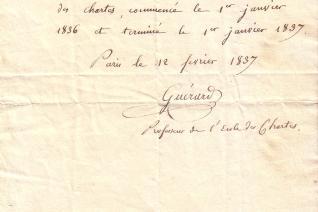 des chartes, commencée le 1er janvier
1836 et terminée le 1er janvier 1837.
Paris le 12 février 1837
Guérard
Professeur de l'Ecole des Chartes.